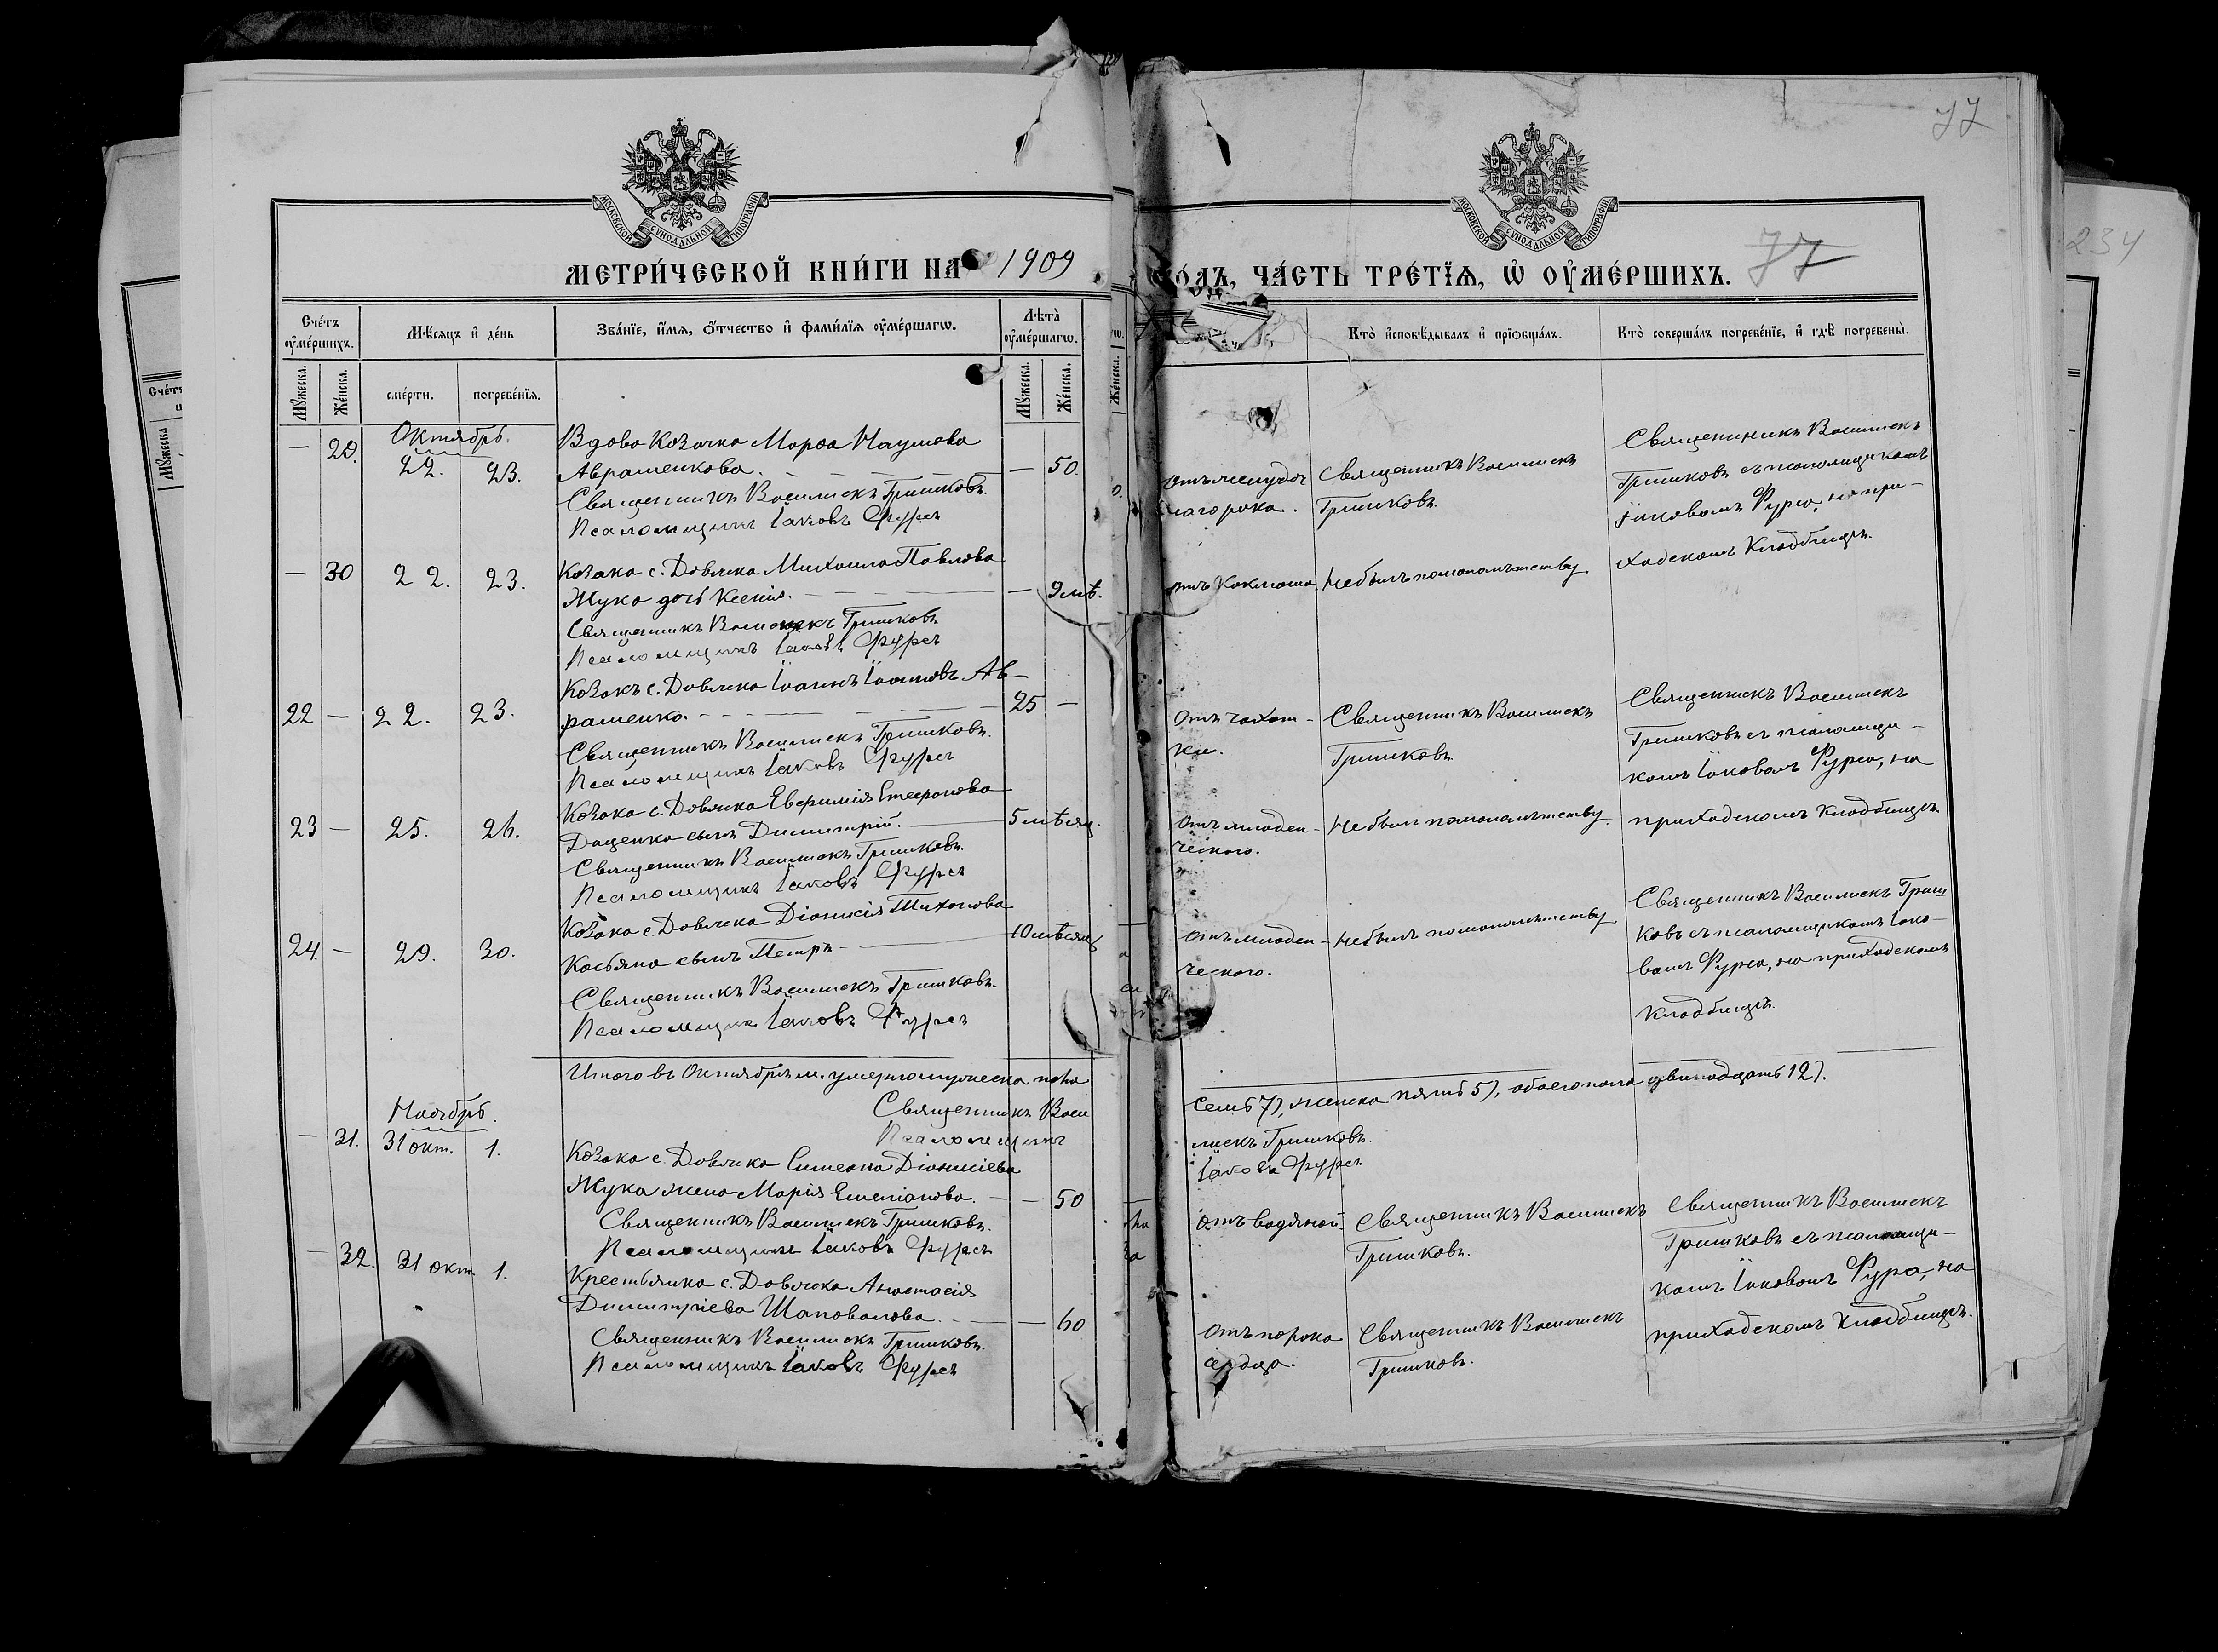 77
234
МОСКОВСКОЙ СѴНОДАЛЬНОЙ ТИПОГРАФІИ
МОСКОВСКОЙ СѴНОДАЛЬНОЙ ТИПОГРАФІИ
МЕТРИ́ЧЕСКОЙ КНИ́ГИ НА 1909
ГО́ДЪ, ЧА́СТЬ ТРЕ́ТЇѦ, Ѡ҆ ОУ҆МЕ́РШИХЪ. 77
Сче́тъ оу҆ме́ршихъ.
Мѣ́сяцъ и҆ де́нь
Зва́нїе, и҆́мѧ, ѻ҆́тчество и҆ фами́лїѧ оу҆ме́ршагѡ.
Лѣ̑та оу҆ме́ршагѡ.
Кто̀ и҆сповѣ́дывалъ и҆ прїѡбща́лъ.
Кто̀ соверша́лъ погребе́нїе, и҆ гдѣ̀ погребены̀.
Му́жеска. Же́нска. сме́рти. погребе́нїѧ. Му́жеска. Же́нска.
Октябрь.
— 29. 22. 23. Вдова Козачка Марѳа Наумова
Авраменкова. — 50.
Священникъ Василискъ Гришковъ.
Псаломщикъ Іаковъ Фурса
Отъ желудоч
наго рока.
Священникъ Василискъ
Гришковъ.
Священникъ Василискъ
Гришковъ съ псаломщикомъ
Іаковомъ Фурса, на при-
ходскомъ Кладбищѣ.
— 30 22. 23. Козака с. Довжка Михаила Павлова
Жука дочь Ксенія. — 9 лѣт.
Священникъ Василискъ Гришковъ
Псаломщикъ Іаковъ Фурса
отъ Коклюша Не былъ по малолѣтству
Козакъ с. Довжка Іоаннъ Іоанновъ Ав-
22 — 22. 23. раменко. 25 —
Священникъ Василискъ Гришковъ.
Псаломщикъ Іаковъ Фурса
Отъ чахот-
ки.
Священникъ Василискъ
Гришковъ.
Священникъ Василискъ
Гришковъ съ псаломщи-
комъ Іаковомъ Фурса, на
приходскомъ Кладбищѣ.
Козака с. Довжка Евфимія Стефанова
23 — 25. 26. Даценка сынъ Димитрій. 5 мѣсяц.
Священникъ Василискъ Гришковъ.
Псаломщикъ Іаковъ Фурса
Отъ младен-
ческаго.
Не былъ по малолѣтству.
Козака с. Довжка Діонисія Тихонова
24 — 29. 30. Касьяна сынъ Петръ 10 мѣсяц
Священникъ Василискъ Гришковъ.
Псаломщикъ Іаковъ Фурса
Отъ младен-
ческаго.
Не былъ по малолѣтству
Священникъ Василискъ Гриш
ковъ съ псаломщикомъ Іако-
вомъ Фурса, на приходскомъ
Кладбищѣ.
Итого въ Октябрѣ м. умерло мужеска пола
семь 7), женска пять 5), обоего пола двенадцать 12).
Священникъ Васи
лискъ Гришковъ.
Псаломщикъ
Іаковъ Фурса
Ноябрь.
— 31. 31 окт. 1. Козака с. Довжка Симеона Діонисіева
Жука жена Марія Емеліанова. — 50
Священникъ Василискъ Гришковъ.
Псаломщикъ Іаковъ Фурса
Отъ водяной.
Священникъ Василискъ
Гришковъ.
Священникъ Василискъ
Гришковъ съ псаломщи-
комъ Іаковомъ Фурса, на
приходскомъ Кладбищѣ.
— 32. 31 окт. 1. Крестьянка с. Довжка Анастасія
Димитріева Шаповалова. — 60
Священникъ Василискъ Гришковъ.
Псаломщикъ Іаковъ Фурса
Отъ порока
сердца.
Священникъ Василискъ
Гришковъ.